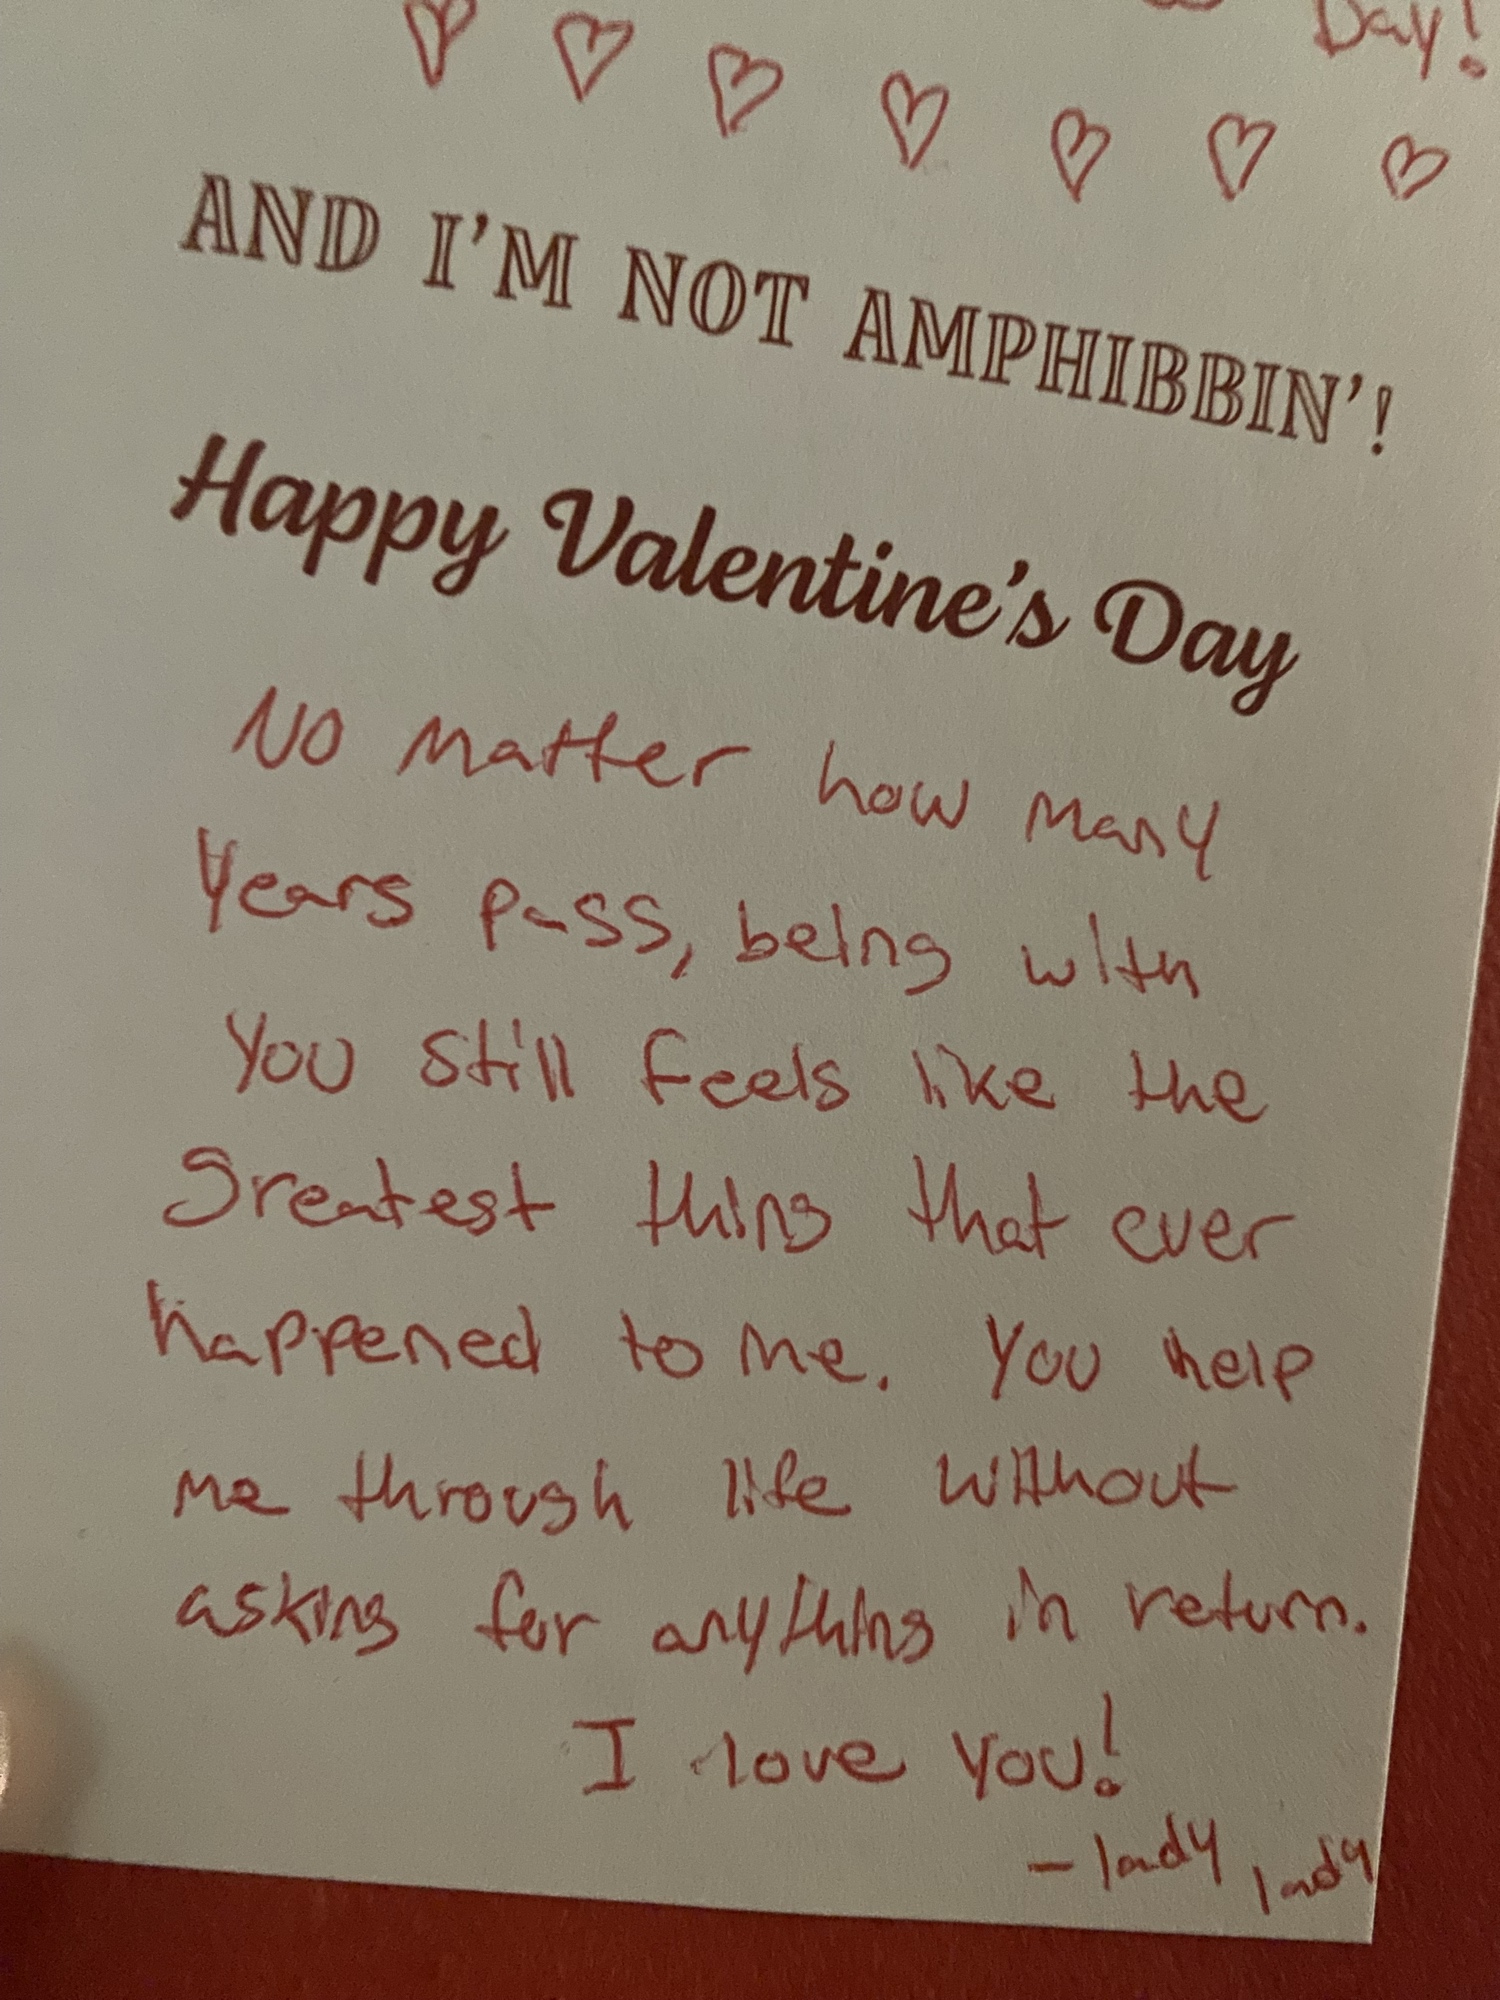 Day!
AND I'M NOT AMPHIBBIN'!
Happy Valentine's Day
No matter how many
years pass, being with
you still feels like the
greatest thing that ever
happened to me. You help
me through life without
asking for anything in return.
I love you!
- lady lady